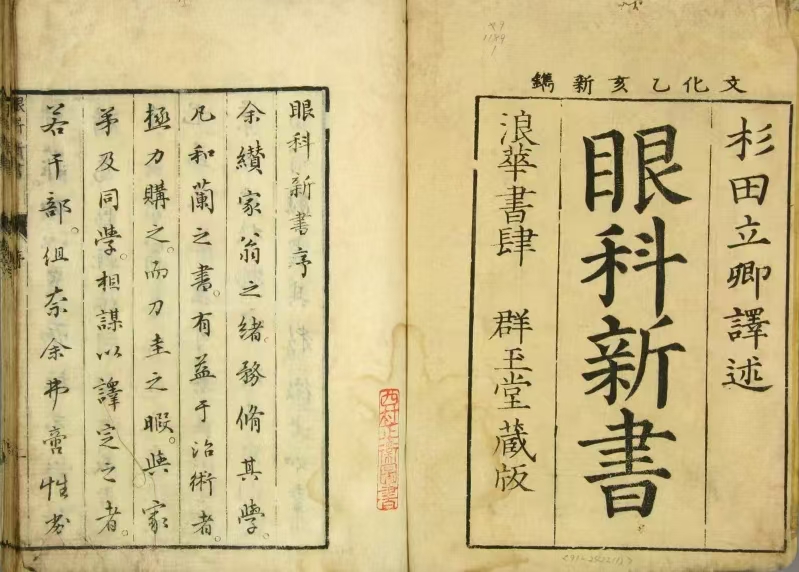 文化乙亥新鐫
杉田立卿譯述
眼科新書
浪華書肆 群玉堂藏版
眼科新書序
余纘家翁之緒。務脩其學。
凡和蘭之書。有益于治術者。
極力購之。而刀圭之暇。與家
弟及同學。相謀以譯定之者。
若干部。但奈余弗啻性